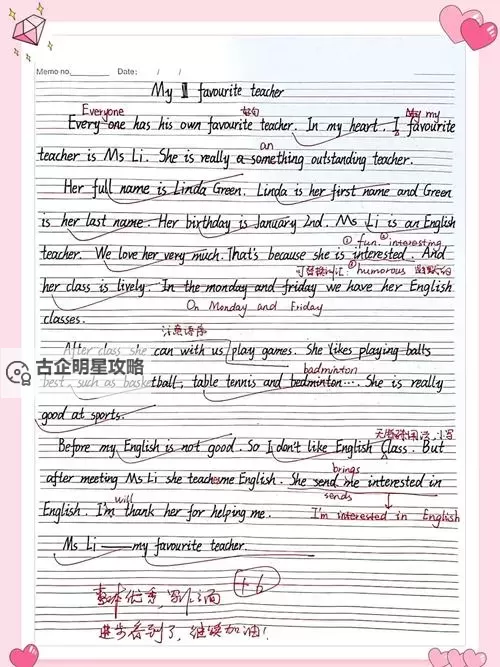 Memo no. Date: / /
My favourite teacher
Everyone 好句 my
Every one has his own favourite teacher. In my heart. I favourite
an
teacher is Ms Li. She is really a something outstanding teacher.
Her full name is Linda Green. Linda is her first name and Green
is her last name. Her birthday is January 2nd. Ms Li is an English
① fun. ② interesting
teacher. We love her very much. That's because she is interested. And
可替换词汇: ③ humorous 幽默的
her class is lively. In the monday and friday we have her English
On Monday and Friday
classes.
注意语序
After class she can with us play games. She likes playing balls
badminton
best, such as basketball, table tennis and bedminton.... She is really
good at sports.
小写
Before my English is not good. So I don't like English Class. But
brings
after meeting Ms Li she teachesme English. She send me interested in
sends
will
English. I'm thank her for helping me.
I'm interested in English
Ms Li — my favourite teacher.
+6
书本优秀,
进步看到了, 继续加油!
古企明星攻略